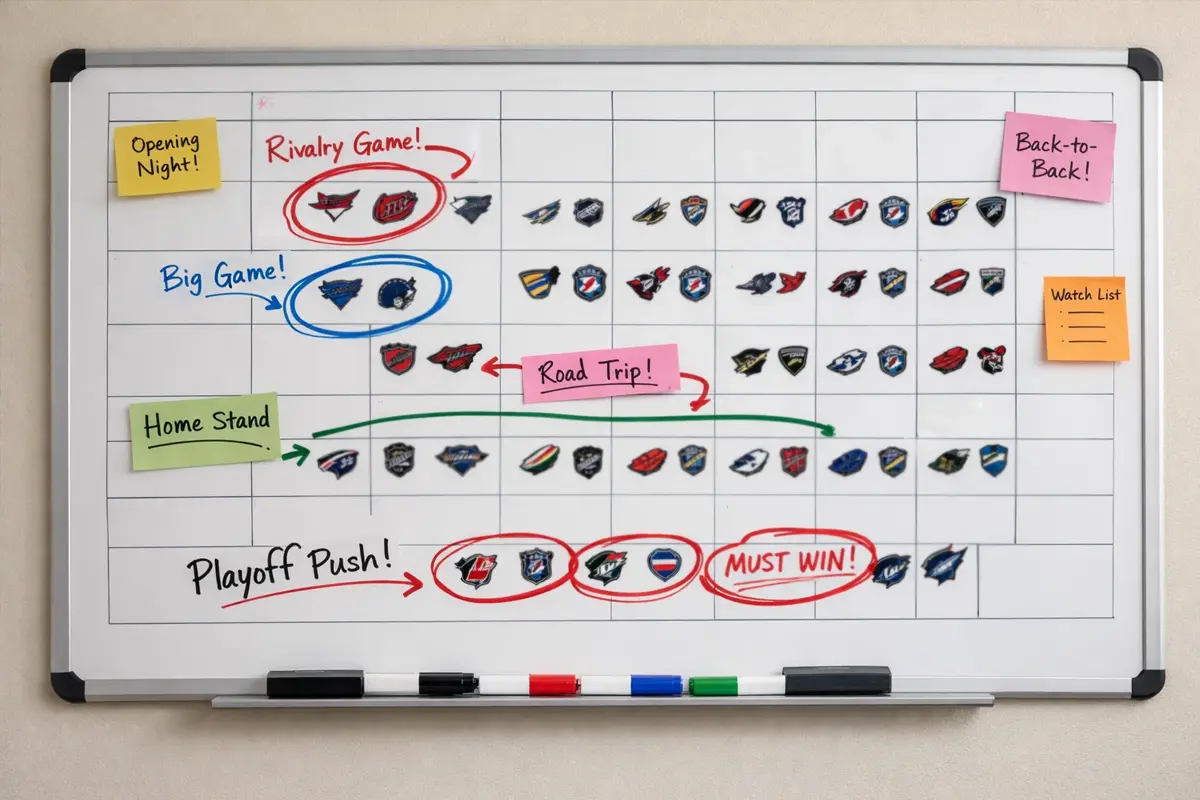 Opening
Night!
Rivalry Game!
Back-to-
Back!
Big Game!
Watch List
Road Trip!
Home Stand
Playoff Push!
MUST WIN!